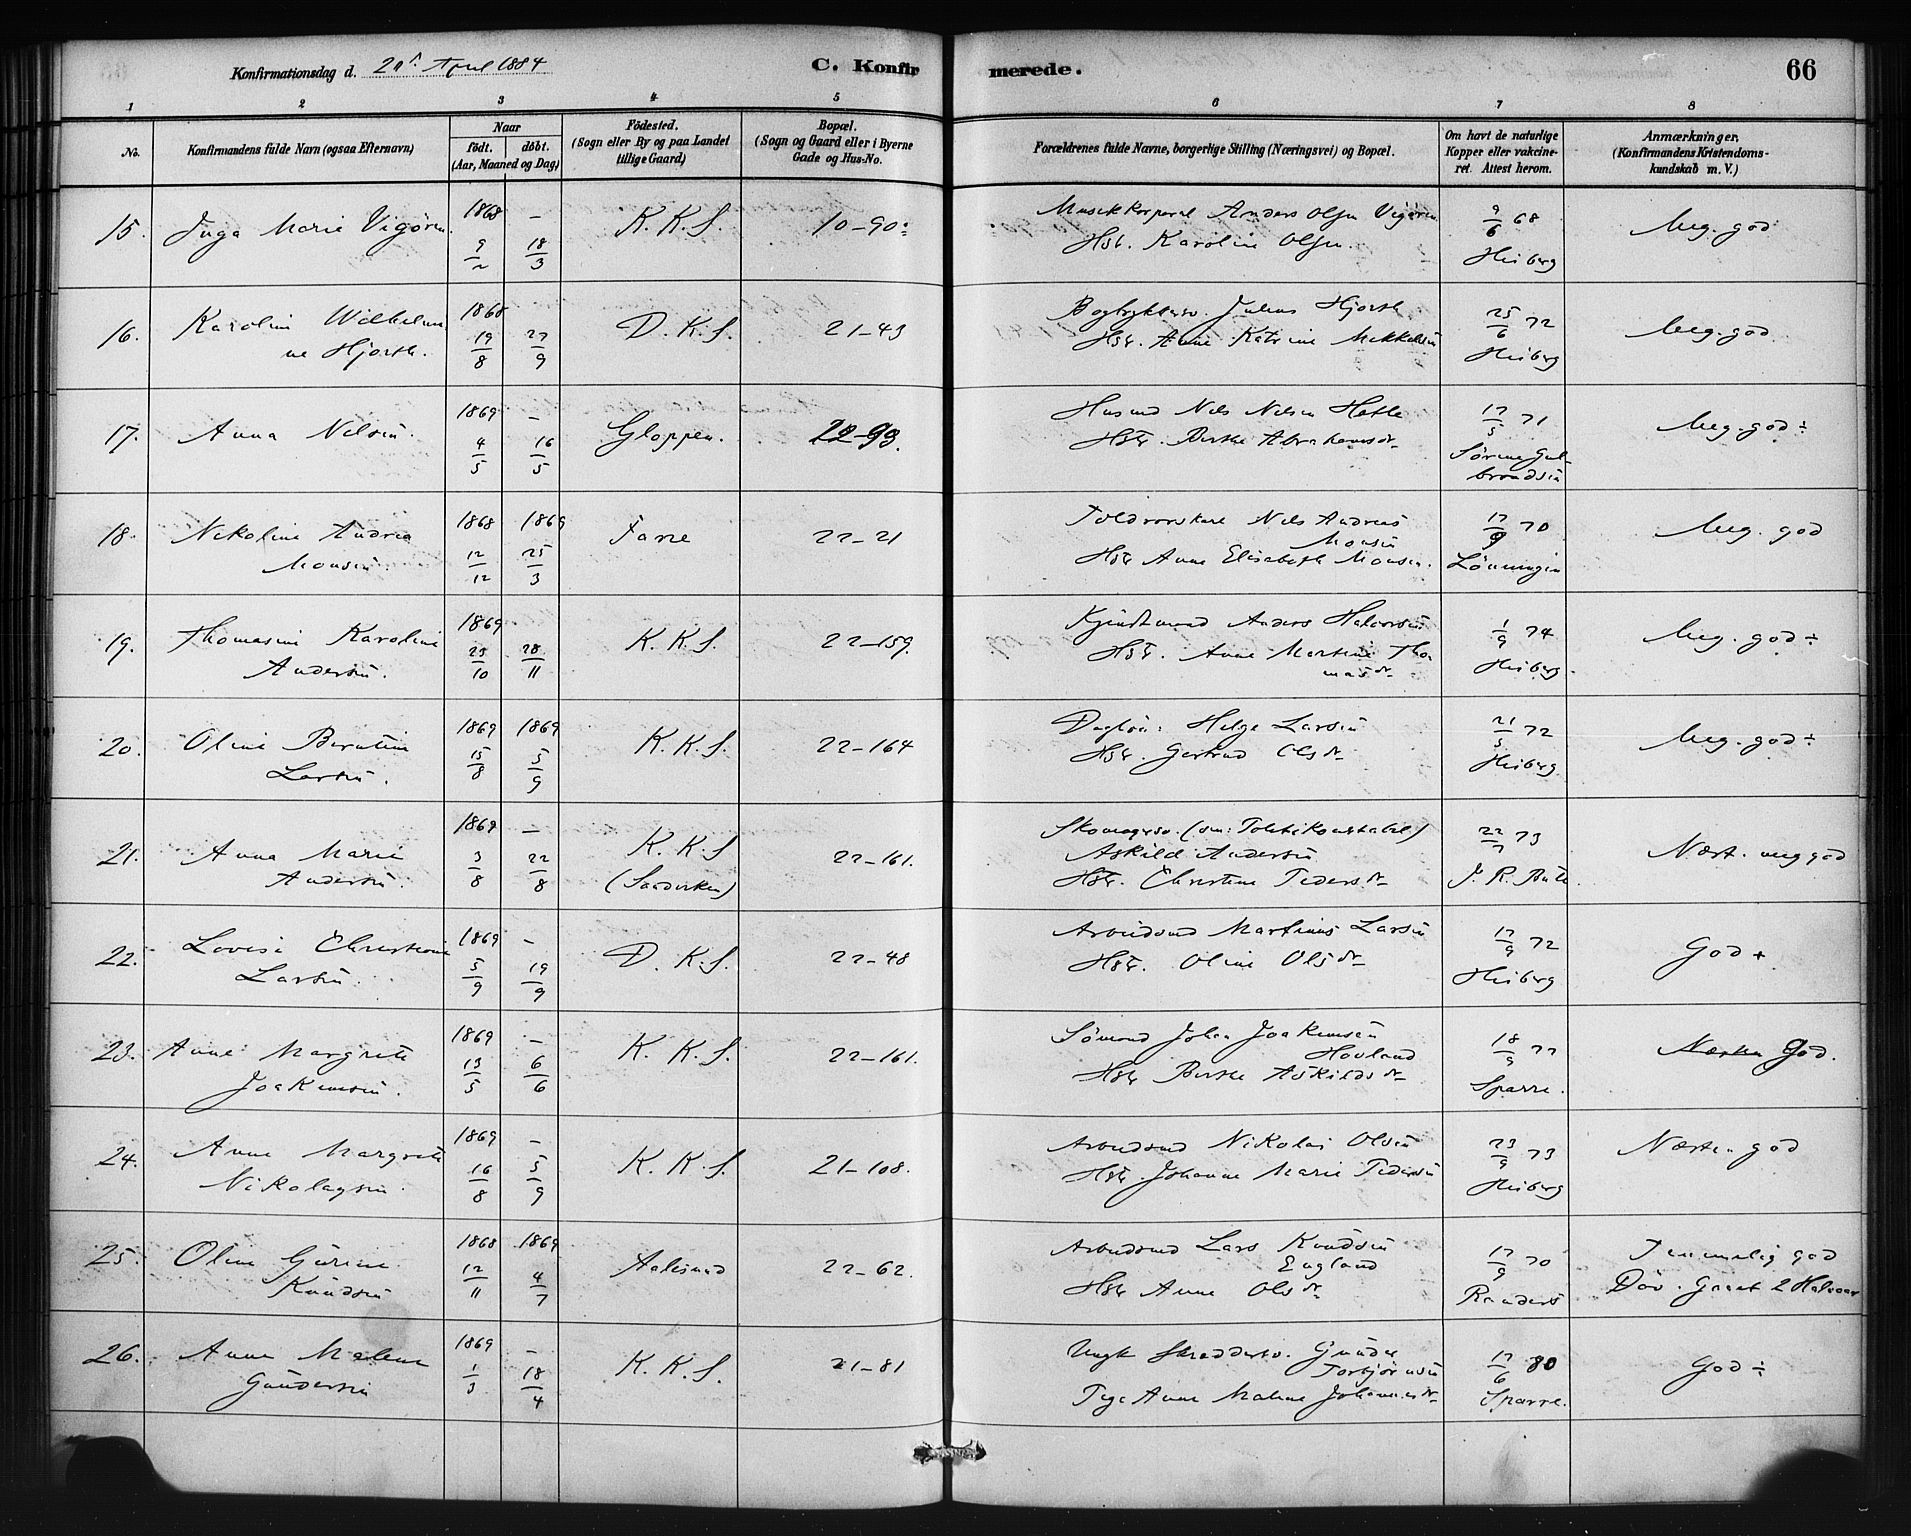 Konfirmationsdag d. April 1884
C. Konfirmerede.
66
1 2 3 4 5 6 7 8
No.
Konfirmandens fulde Navn (ogsaa Efternavn)
Naar
født. døbt.
(Aar, Maaned og Dag)
Fødested.
(Sogn eller By og paa Landet
tillige Gaard)
Bopæl.
(Sogn og Gaard eller i Byerne
Gade og Hus-No.
Forældrenes fulde Navne, borgerlige Stilling (Næringsvei) og Bopæl.
Om havt de naturlige
Kopper eller vakcine-
ret. Attest herom.
Anmærkninger,
(Konfirmandens Kristendoms-
kundskab m. V.)
15. Inga Marie Vigøren 1868 9/2 – 18/3 K. K. S. 10-90 Musikkorporal Anders Olsen Vigøren
Hst. Karoline Olsen. 9/6 68 Heiberg Meg. god
16. Karolin Wilhelmi
ne Hjorth. 1868 19/8 27/9 D. K. S. 21-43 Julius Hjorth
Hstr. Anne Katrine Mikkelsen 25/6 72 Heiberg Meg. god
17. Anna Nilsen. 1869 4/5 – 16/5 Gloppen. 22-93. Husmd Nils Nilsen Hetle
Hstr. Birthe Abrahamsdr 17/5 71 Sørine Gul-
brandsen Meg. god ÷
18. Nikoline Andrea
Monsen. 1868 12/12 1869 25/3 22-21 Nils Andreas
Monsen
Hstr Anne Elisabeth Monsen. 17/9 70 Lönningen Meg. god
19. Thomasine Karoline
Andersen. 1869 23/10 28/11 K. K. S. 22-159. Anders Halvorsen
Hstr. Anne Martine Tho
masdr 1/9 74 Heiberg. Meg. god ÷
20. Oline Berntine
Larsen. 1869 15/8 1869 5/9 K. K. S. 22-164 Dagløn: Helge Larsen
Hstr. Gertrud Olsdr 21/5 72 Heiberg Meg. god ÷
21. Anna Marie
Andersen. 1869 3/8 – 22/8 K. K. S
(Sandviken) 22-161. Skomagersv. (sen: Politikonstabel)
Askild Andersen
Hstr. Christine Pedersdr 22/7 73 J. R. Næst. meg god
22. Lovise Christiane
Larsen. 1869 5/9 – 19/9 D. K. S. 22-48 Arbeidsmd Martinus Larsen
Hstr. Oline Olsdr 17/9 72 Heiberg God +
23. Anne Margrete
Joakimsen. 1869 13/5 – 6/6 K. K. S. 22-161. Sömand Johan Joakimsen
Hovland
Hstr Birthe Askildsdr 18/9 77 Sparre. Næsten God.
24. Anne Margrete
Nikolaysen. 1869 16/8 – 5/9 K. K. S. 21-108. Arbeidsmd Nikolai Olsen
Hstr. Johanne Marie Pedersen 23/9 73 Heiberg Næsten god
25. Oline Gurine
Knudsen 1868 12/11 1869 4/7 Aalesund 22-62. Arbeidsmd Lars Knudsen
England
Hstr Anne Olsdr 17/9 70 Randers Temmelig god
Döv. Gaaet 2 Halvaar
26. Anne Malene
Gundersen 1869 1/3 – 18/4 K. K. S. 21-81 Ungk Skreddersv. Gunder
Torbjörnsen
Pige Anne Malene Johannesdr 17/6 80 Sparre. God ÷